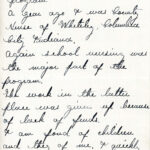 program.
A year ago I was County
Nurse of Whitley, Columbia
City, Indiana,
Again school nursing was
the major part of the
program.
The work in the latter
place was given up because
of lack of funds.
I am fond of children
and they of me, &